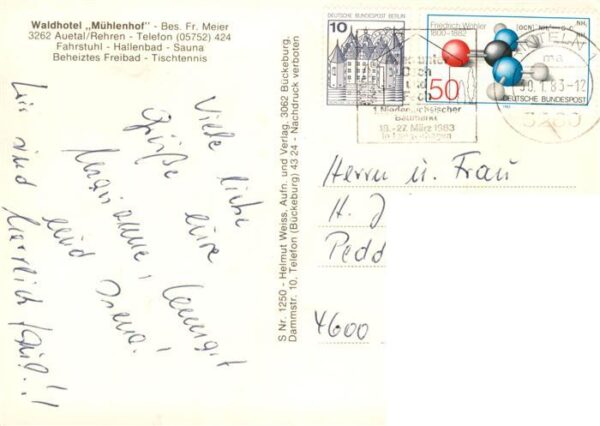 Waldhotel „Mühlenhof" - Bes. Fr. Meier
3262 Auetal/Rehren - Telefon (05752) 424
Fahrstuhl - Hallenbad - Sauna
Beheiztes Freibad - Tischtennis
Viele liebe
Grüße eure
Marianne,
und Irena.
Wir sind
herrlich
S Nr. 1250 - Helmut Weiss, Aufn. und Verlag, 3062 Bückeburg,
Dammstr. 10, Telefon (Bückeburg) 43 24 - Nachdruck verboten
10
DEUTSCHE BUNDESPOST BERLIN
Friedrich Wöhler
1800-1882
50
DEUTSCHE BUNDESPOST
1. Niedersächsischer
18.-27. März 1983
RINTELN
ma
1.83-12
3260
Herrn u. Frau
H. J
Pedd
4600